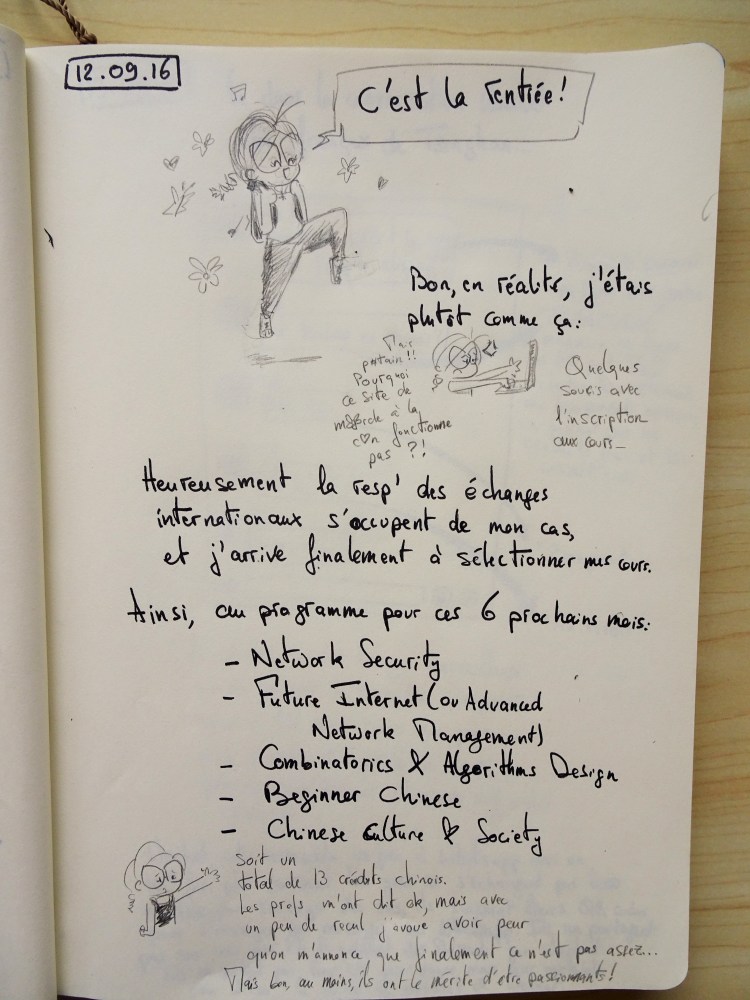 12.09.16
C'est la rentrée!
Bon, en réalité, j'étais
plutôt comme ça:
Mais
p*tain!!
Pourquoi
ce site de
m
à la
c♡n fonctionne
pas ?!
Quelques
soucis avec
l'inscription
aux cours_
Heureusement la resp' des échanges
internationaux s'occupent de mon cas,
et j'arrive finalement à sélectionner mes cours.
Ainsi, au programme pour ces 6 prochains mois:
- Network Security
- Future Internet (ou Advanced
Network Management)
- Combinatorics & Algorithms Design
- Beginner Chinese
- Chinese Culture & Society
Soit un
total de 13 crédits chinois.
Les profs m'ont dit ok, mais avec
un peu de recul j'avoue avoir peur
qu'on m'annonce que finalement ce n'est pas assez...
Mais bon, au moins, ils ont le mérite d'être passionnants!